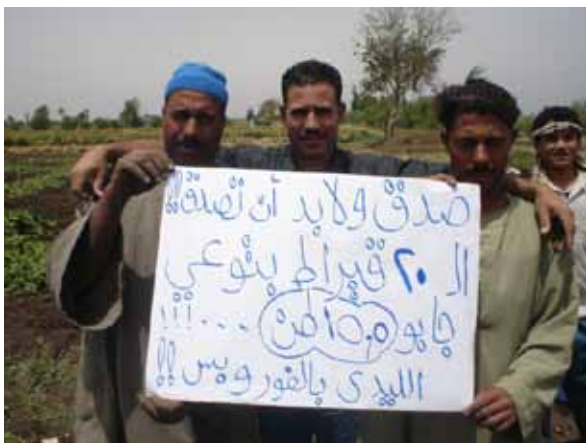 صدق ولابد أن تصدق!!
الـ ٢٠ قيراط بتوعي
جابو ١٥,٥ طن ...!!!
الليدى بالفور وبس!!